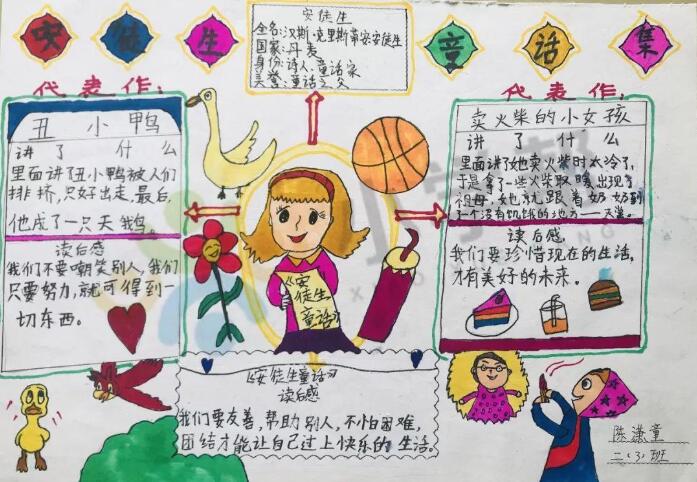 安徒生童话集
安徒生
全名:汉斯·克里斯蒂安安徒生
国家:丹麦
身份:诗人、童话家
美誉:童话之父
代表作:
丑小鸭
讲了什么
里面讲了丑小鸭被人们
排挤,只好出走,最后,
他成了一只天鹅。
读后感
我们不要嘲笑别人,我们
只要努力,就可得到一
切东西。
代表作:
卖火柴的小女孩
讲了什么
里面讲了她卖火柴时太冷了,
于是拿了一些火柴取暖,出现了
祖母,她就跟着奶奶到
了一个没有饥饿的地方——天堂。
读后感,
我们要珍惜现在的生活,
才有美好的未来。
《安
徒生
童话》
《安徒生童话》
读后感
我们要友善,帮助别人,不怕困难,
团结才能让自己过上快乐的生活。
陈潇童
二(3)班